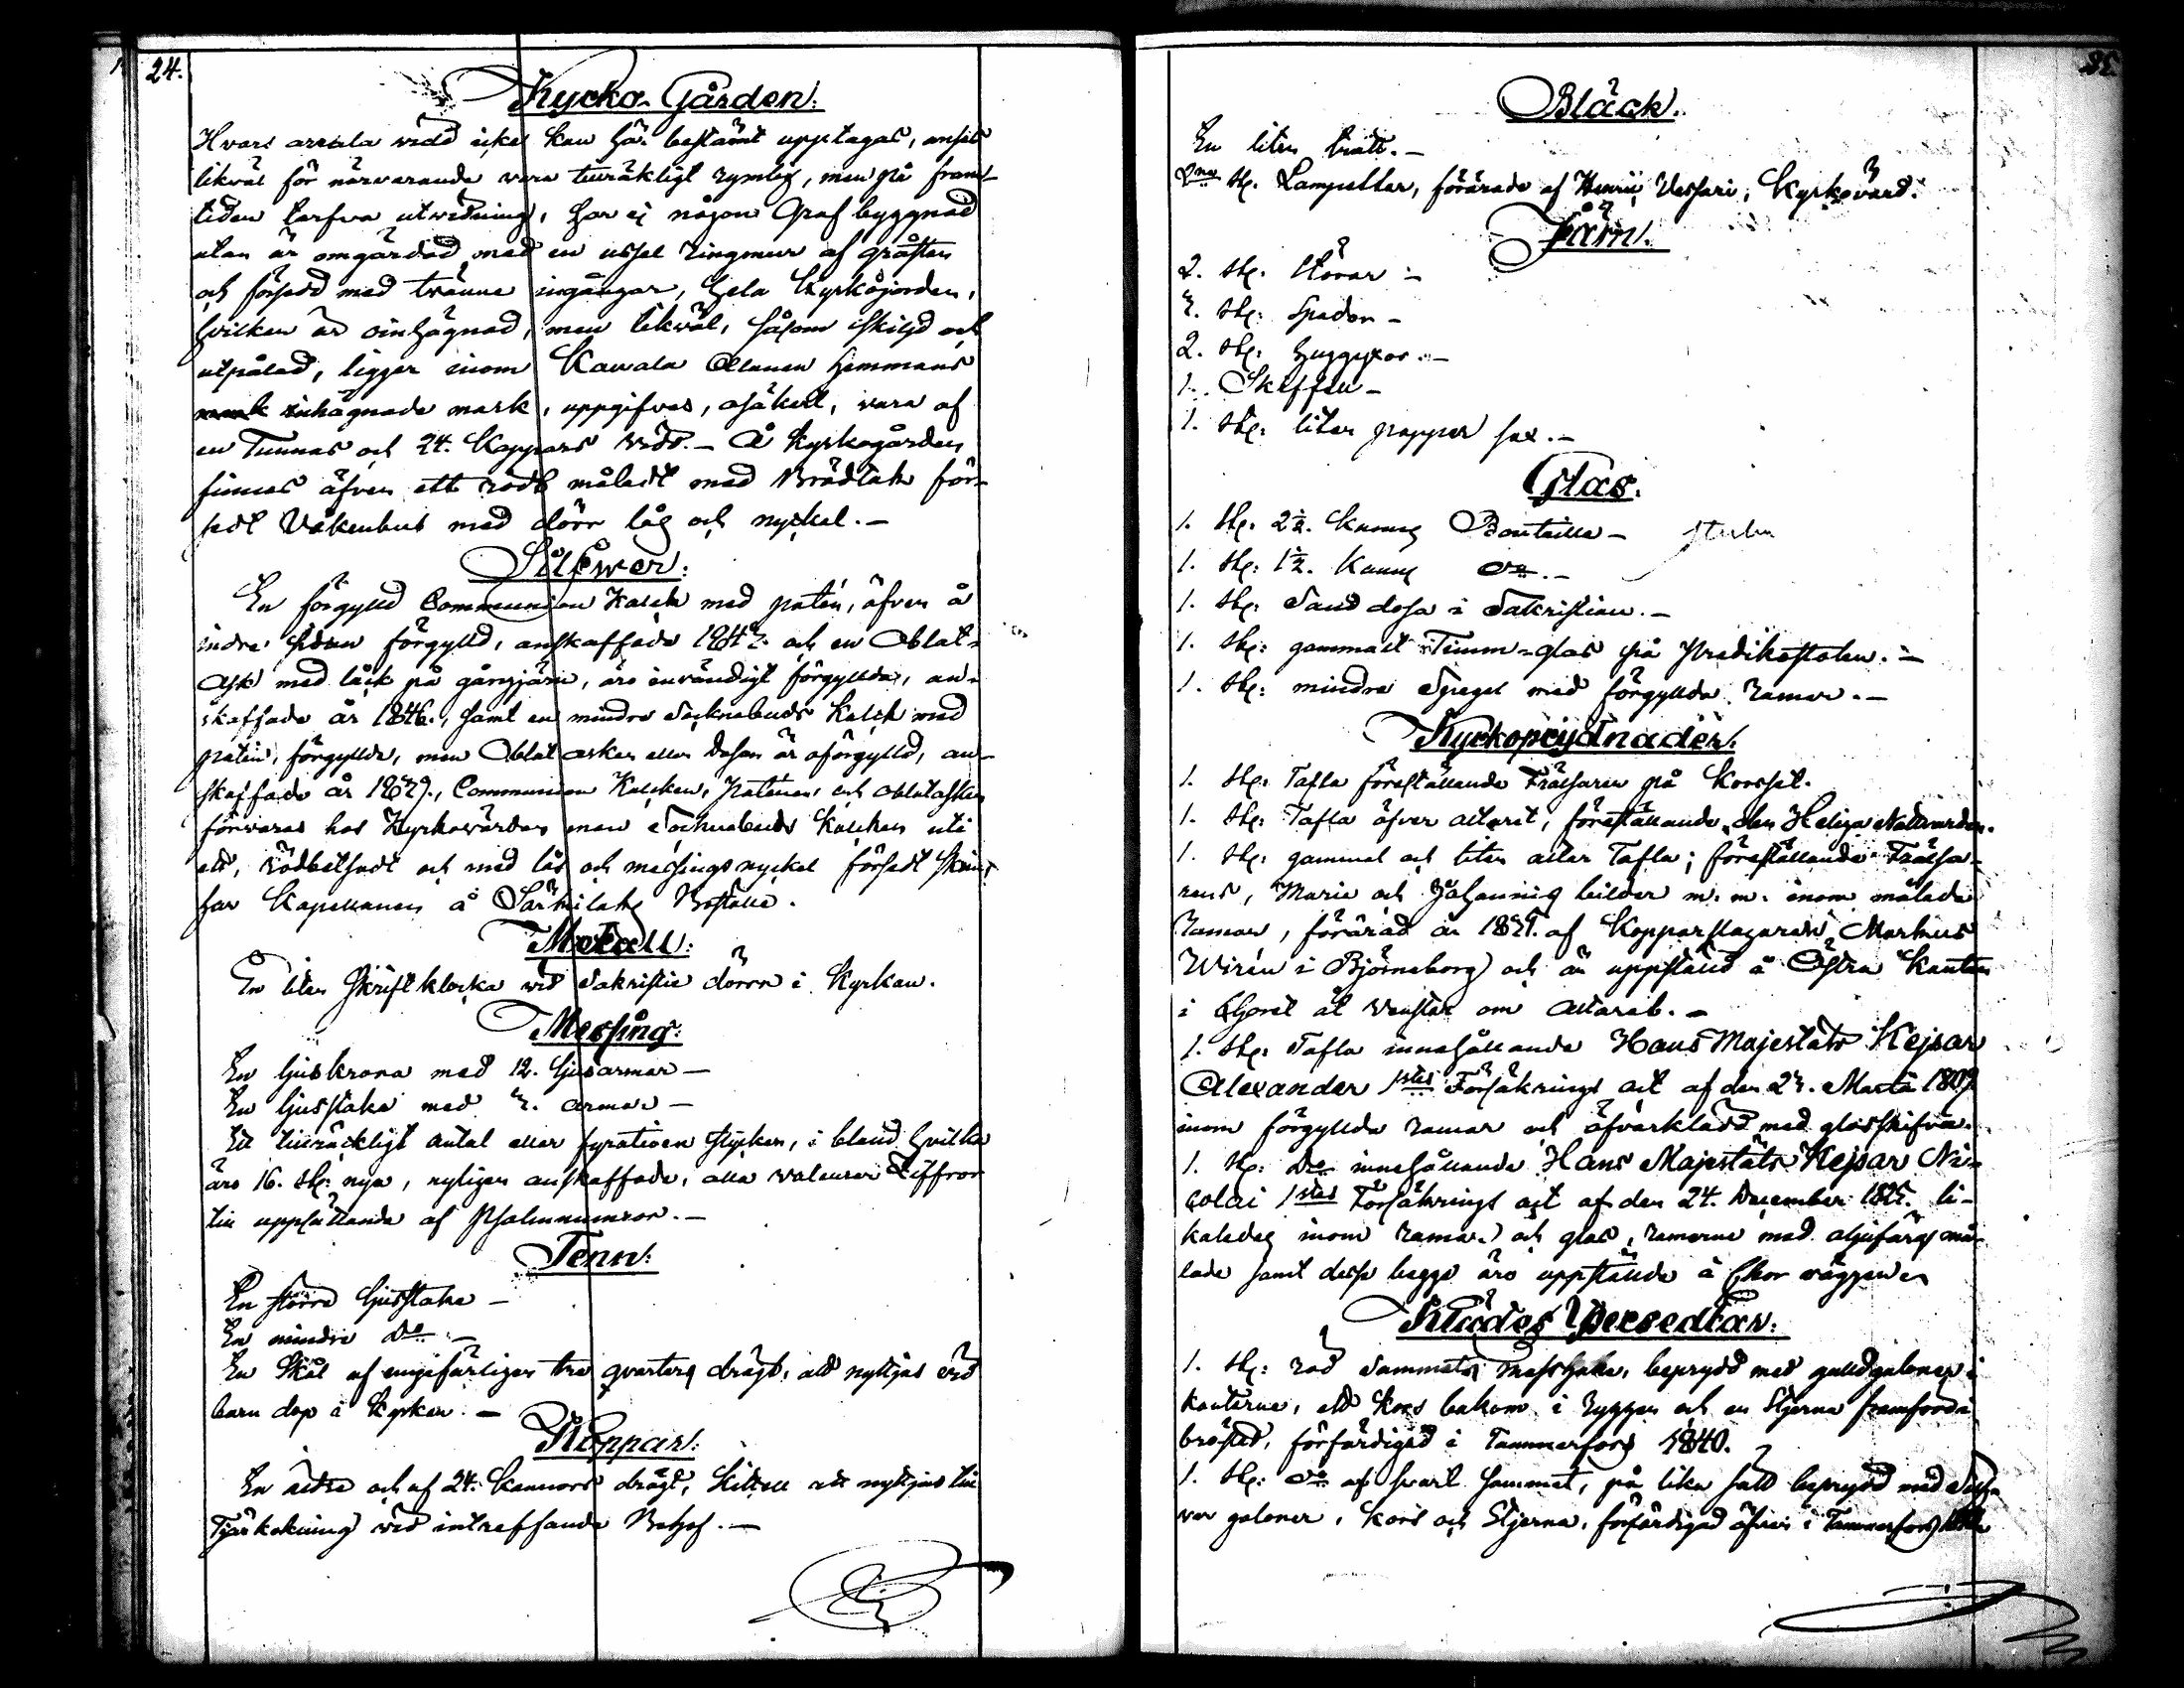 24.
Kyrko-Gården:
Hvars areala vidd icke kan här bestämt upptagas, anses
likväl för närvarande vara tillräkligt rymlig, men på fram-
tiden tarfva utvidning, har ej någon Graf byggnad
utan är omgärdad med en ussel Ringmur af gråsten
och försedd med tvänne ingångar, hela Kyrkojorden,
hvilken är oinhägnad, men likväl, såsom skiljd och
utpålad, ligger inom Kawala Allanen Hemmans
inhägnade mark, uppgifves, osäkert, vara af
en Tunnas och 24. Kappars vidd.- Å Kyrkogården
finnes äfven ett rödt måladt med Brädtak för-
sedt Våkenhus med dörr låg och nyckel.-
Silfwer:
En förgylld Communion Kalck med patén, äfven å
indre sidan förgylld, anskaffade 1843. och en Oblat-
Ask med låck på gångjärn, äro invändigt förgyllda, an-
skaffade år 1846., samt en mindre Socknebuds Kalck med
patén, förgyllda, men Oblat asken eller dosan är oförgylld, an-
skaffade år 1839., Communion Kalcken, Patenen, och oblatasken
förvaras hos Kyrkovärden men Socknebuds Kalcken uti
ett, rödbetsadt och med lås och messings nyckel försedt Skrin,
har Kapellanen å Särkilaks Boställe.
Metall:
En liten Skriftklocka vid Sakristie dörren i Kyrkan.
Messing:
En ljuskrona med 12. ljusarmar -
En ljusstake med 3. armar -
Ett tillräckligt antal eller fyratioen stycken, i bland hvilka
äro 16. st: nya, nyligen anskaffade, alla valeurer Ziffror
till uppsättande af Psalmnumror.-
Tenn:
En större ljusstake -
En mindre do -
En Skål af ungefärligen tre qvarters drägt, att nyttjas vid
barn dop i Kyrkan. -
Koppar:
En äldre och af 24. Kannors drägt, Kittel att nyttjas till
Tjärkokning vid inträffande Behof. -
25.
Bläck.
En liten tratt. -
2ne st. Lampetter, förärade af Henric Vessari, Kyrkovärd.
Järn.
2. st: Störar -
3. st: Spador -
2. st: huggyxor. -
1. Skyffel -
1. st: liten papper sax. -
Glas:
1. st: 2½. Kanns Bouteille -
1. st: 1½. Kanns do. -
1. st: Sand dosa i Sakristian. -
1. st: gammalt Timm-glas på Predikostolen. -
1. st: mindre Spegel med förgyllda ramar. -
Kyrkoprydnader:
1. st: Tafla föreställande Frälsaren på Korsset.
1. st: Tafla öfver altaret, föreställande den Heliga Nattvarden.
1. st: gammal och liten altar Tafla; föreställande Frälsa-
rens, Marie och Johannis bilder m. m. inom målade
Ramar, förärad år af Kopparslagaren Markus
Wirén i Björneborg och är uppställd å Östra Kanten
i Choret åt venster om Altaret. -
1. st: Tafla innehållande Hans Majestäts Kejsar
Alexander 1stes Försäkrings act af den 27. Martii 1809
inom förgyllda ramar och öfverklädd med glasskifva.
1. st: do innehållande Hans Majestäts Kejsar Ni-
colai 1stes Försäkrings act af den 24. December 1825. li-
kaledes inom ramar och glas, ramarne med oljefärg må-
lade samt dessa begge äro uppställda å Chor väggen.
Klädes Persedlar:
1. st: röd Sammets Messhake, beprydd med guldgaloner i
kanterne, ett Kors bakom i Ryggen och en Stjerna framföre i
bröstet, förfärdigad i Tammerfors 1840.
1. st: do af svart Sammet, på lika sätt beprydd med Silf-
ver galoner, Kors och Stjerna, förfärdigad äfven i Tammerfors